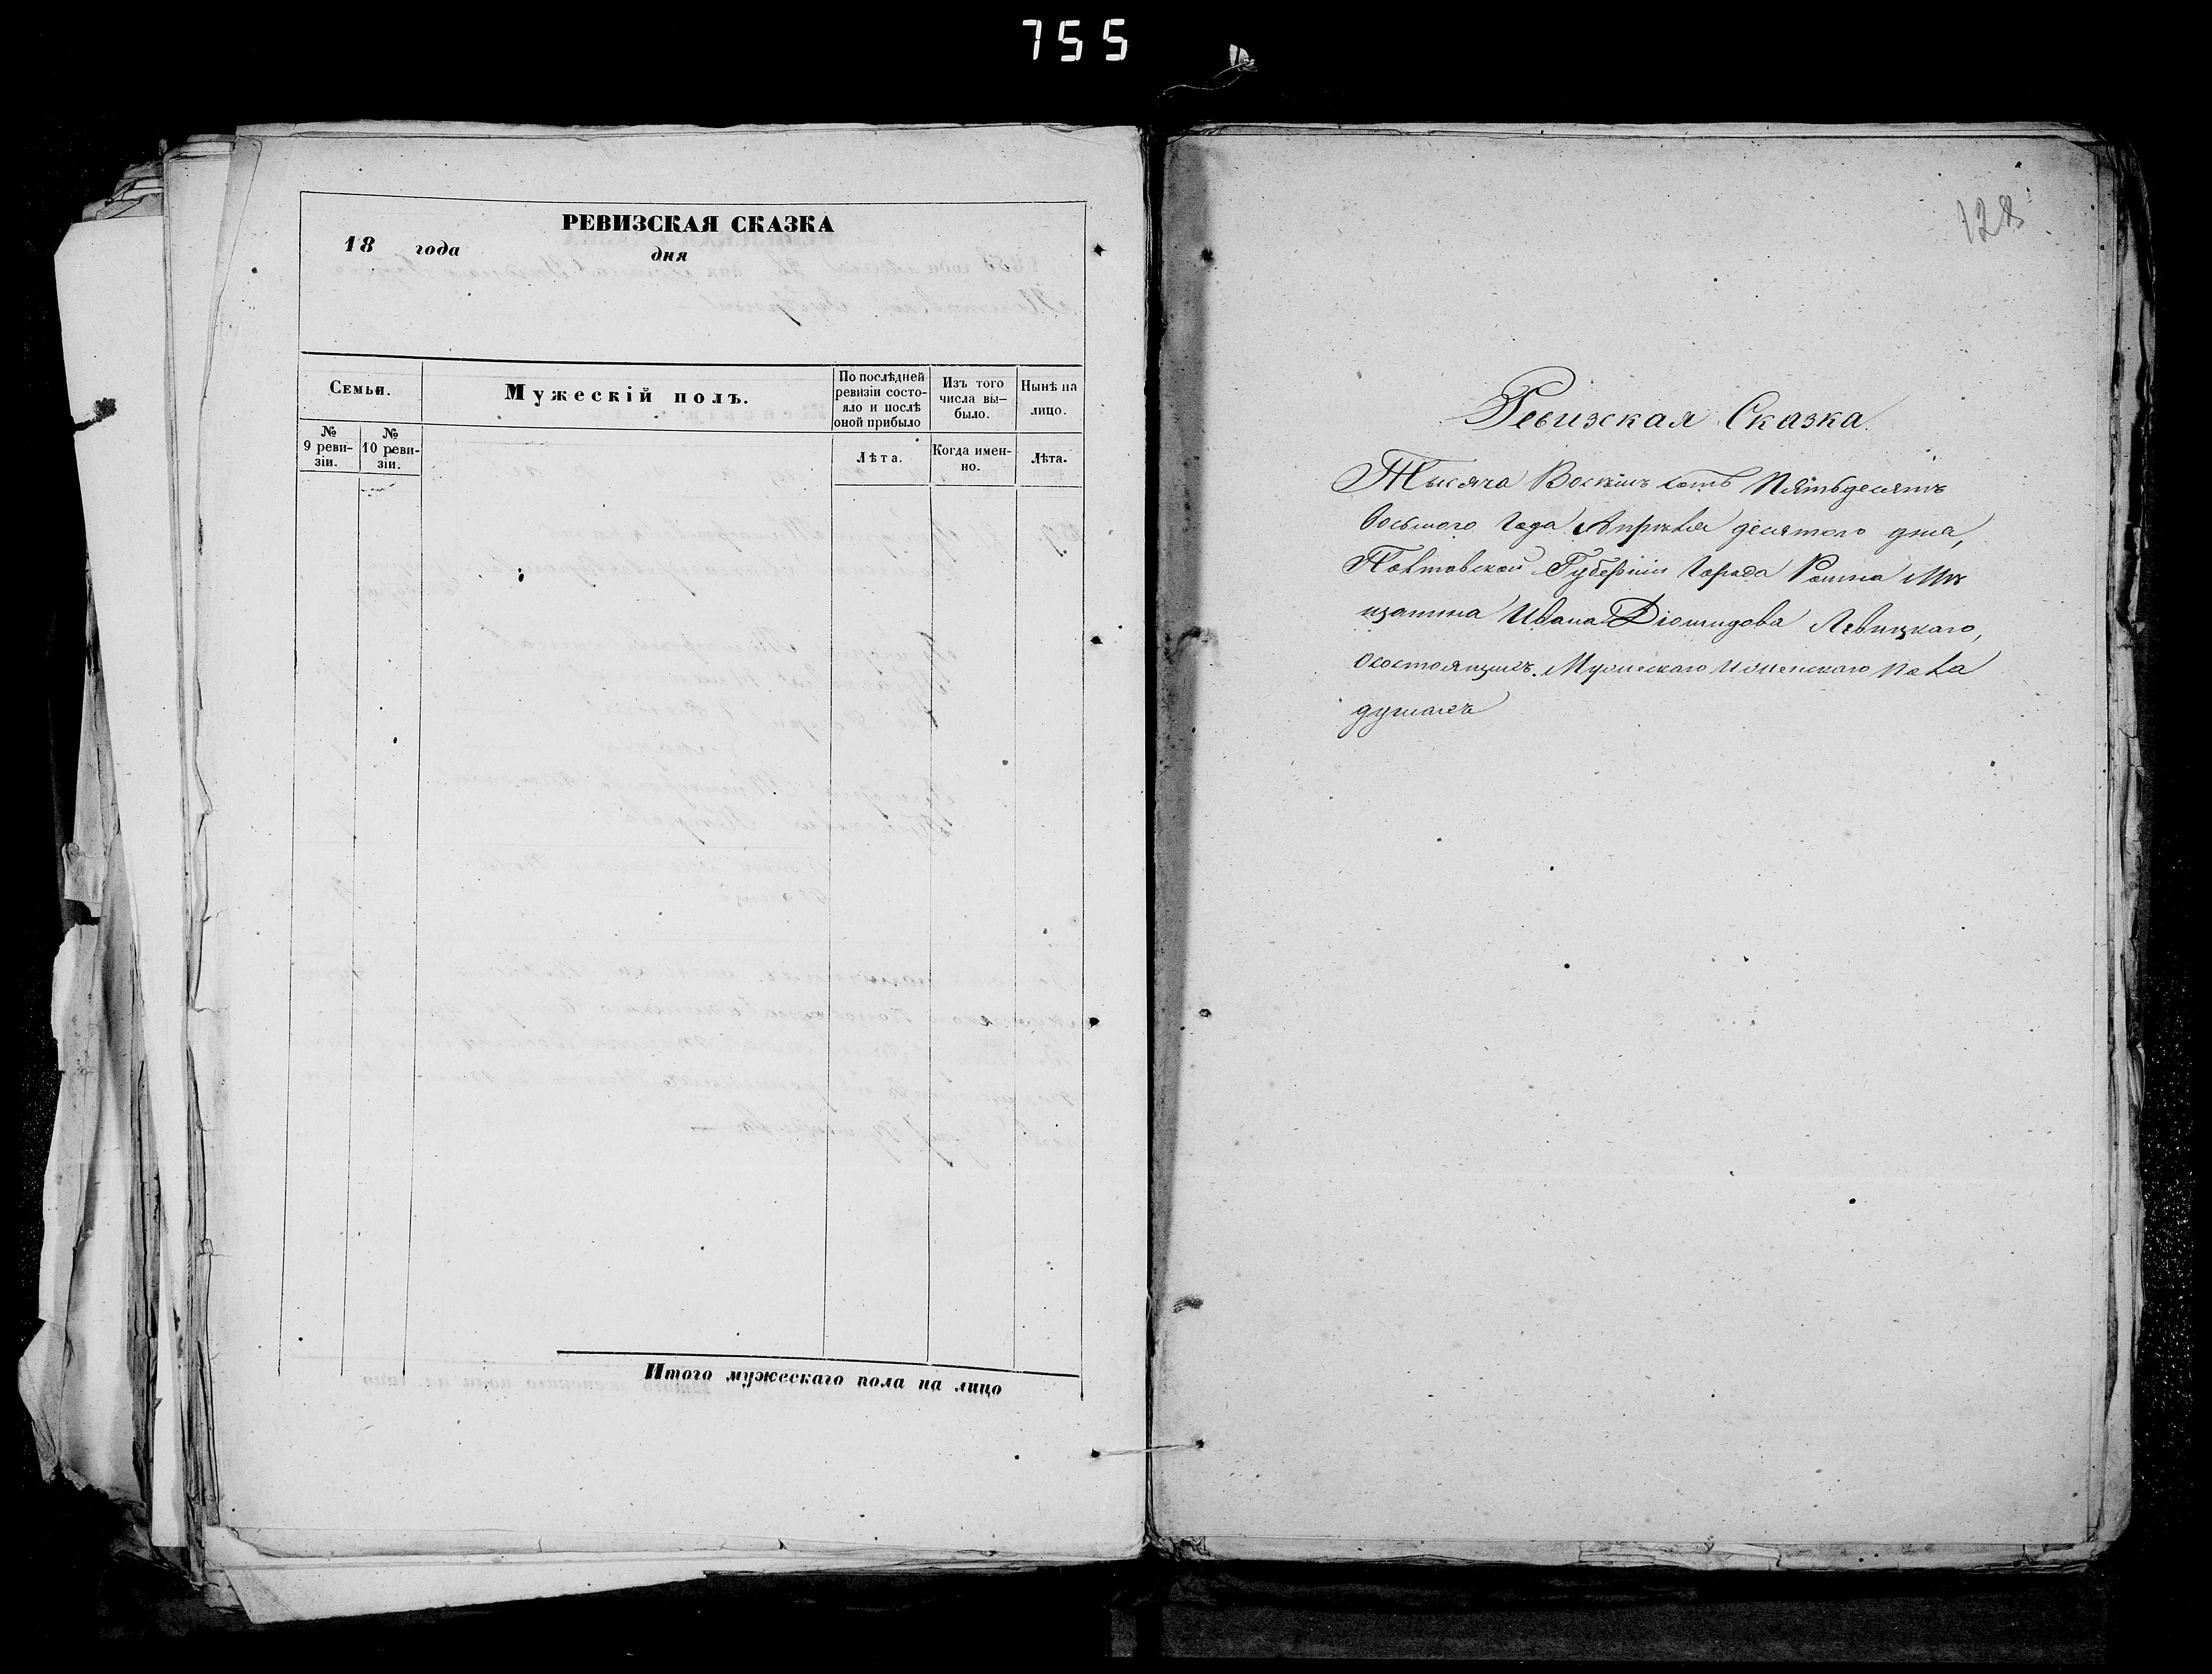 755
РЕВИЗСКАЯ СКАЗКА
18 года дня
Семьи.
Мужескій полъ.
По послѣдней ревизіи состояло и послѣ оной прибыло
Изъ того числа выбыло.
Нынѣ на лицо.
№ 9 ревизіи.
№ 10 ревизіи.
Лѣта.
Когда именно.
Лѣта.
Итого мужескаго пола на лицо
128
Ревизская Сказка
Тысяча Восѣмь сотъ Пятьдесятъ
Восьмого Года Апрѣля десятого дня,
Полтавской Губерніи Города Ромна Мѣ
щанина Ивана Діомидова Левицкаго,
О состоящихъ Мужескаго И женскаго пола
душахъ